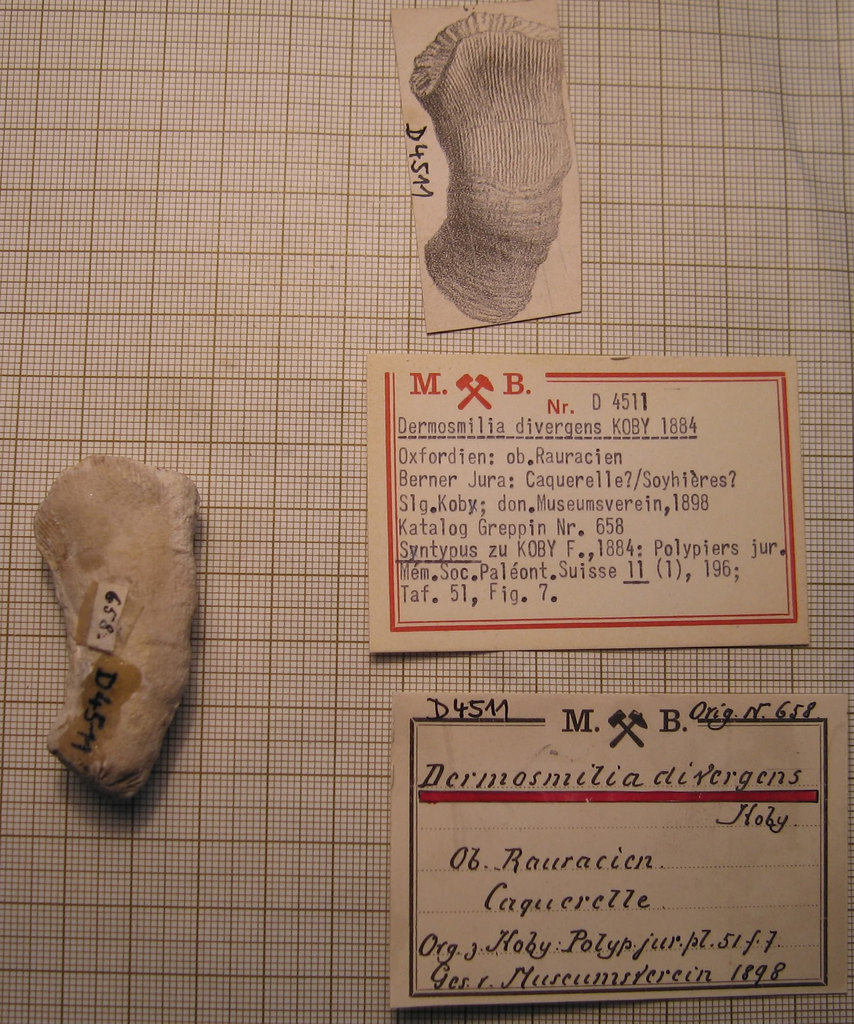 D4511
M. B.
Nr. D 4511
Dermosmilia divergens KOBY 1884
Oxfordien: ob.Rauracien
Berner Jura: Caquerelle?/Soyhières?
Slg.Koby; don.Museumsverein,1898
Katalog Greppin Nr. 658
Syntypus zu KOBY F.,1884: Polypiers jur.
Mém.Soc.Paléont.Suisse 11 (1), 196;
Taf. 51, Fig. 7.
658.
D4511
D4511 M. B. Orig. Nr. 658
Dermosmilia divergens
Koby.
Ob. Rauracien.
Caquerelle
Org. z. Koby: Polyp. jur. pl. 51 f. 7
Ges. v. Museumsverein 1898